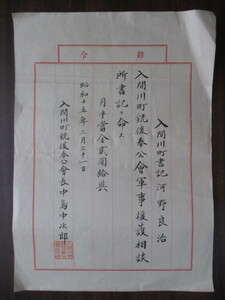 辞令
入間川町書記 河野良治
入間川町銃後奉公會軍事援護相談
所書記ヲ命ス
月手當金貳圓給與
昭和十五年三月三十一日
入間川町銃後奉公會長中島中次郎